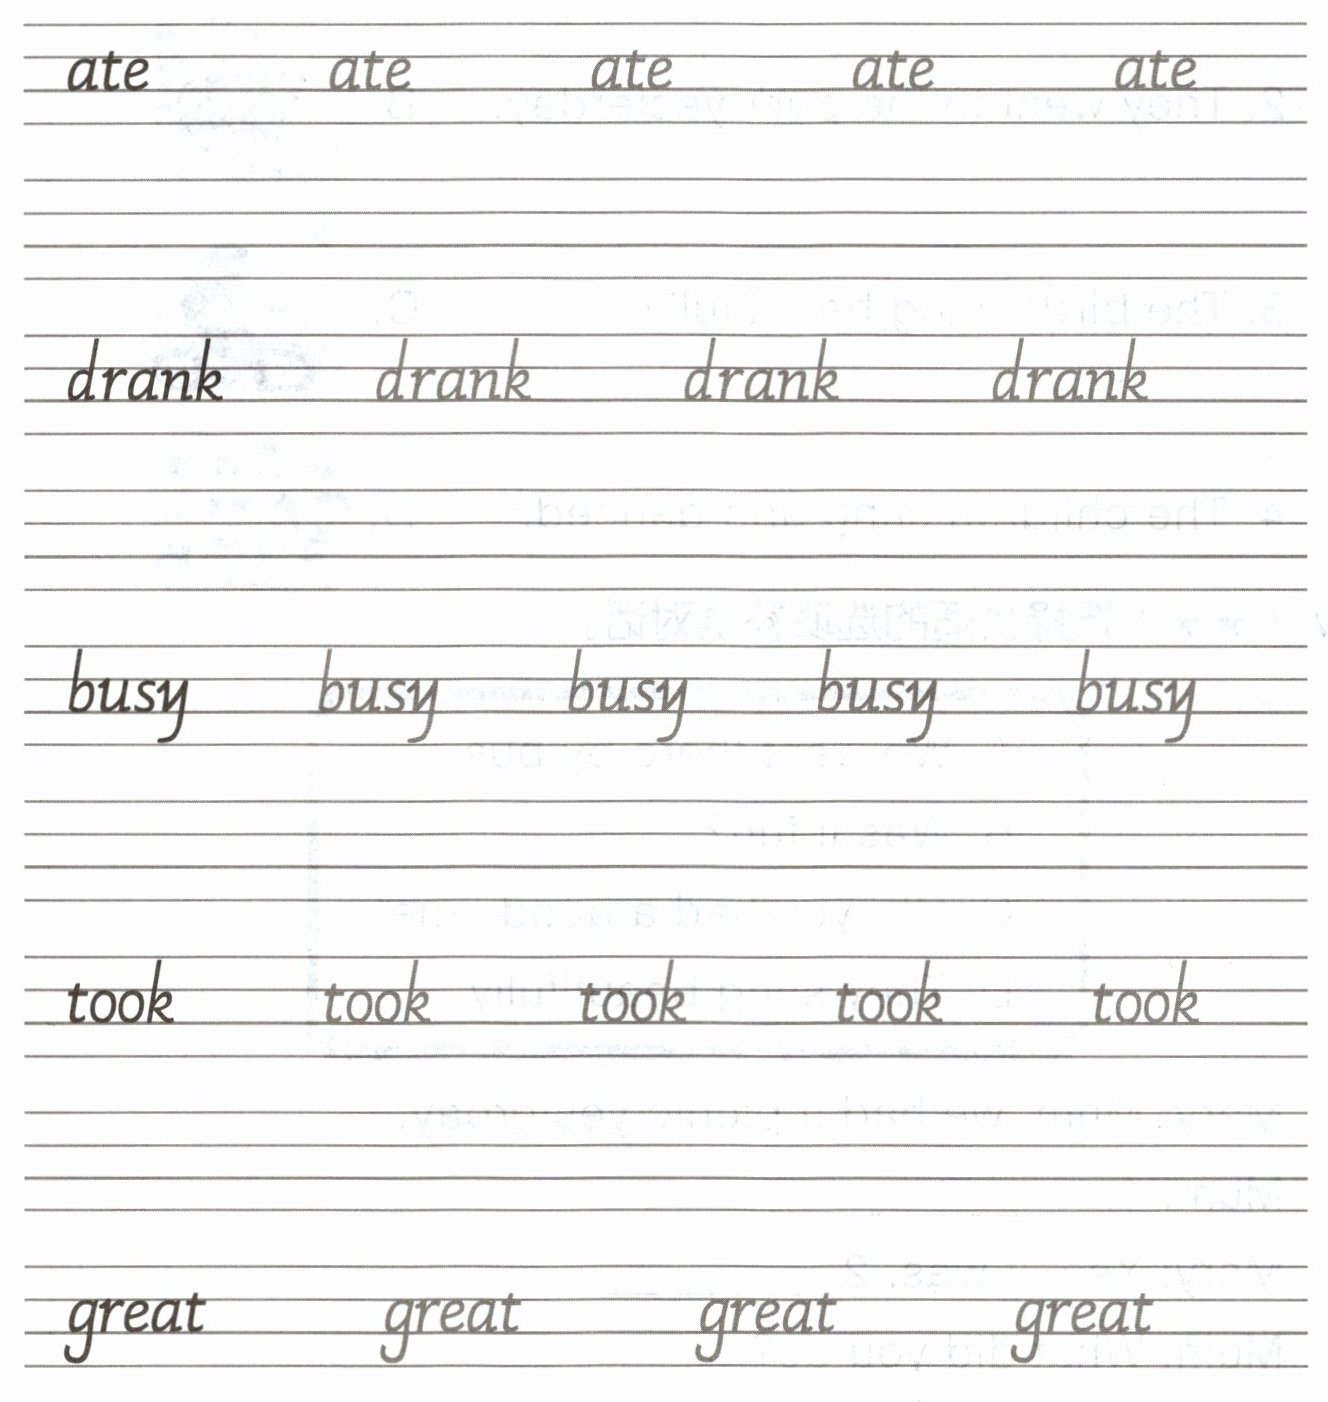 ate ate ate ate ate
drank drank drank drank
busy busy busy busy busy
took took took took took
great great great great